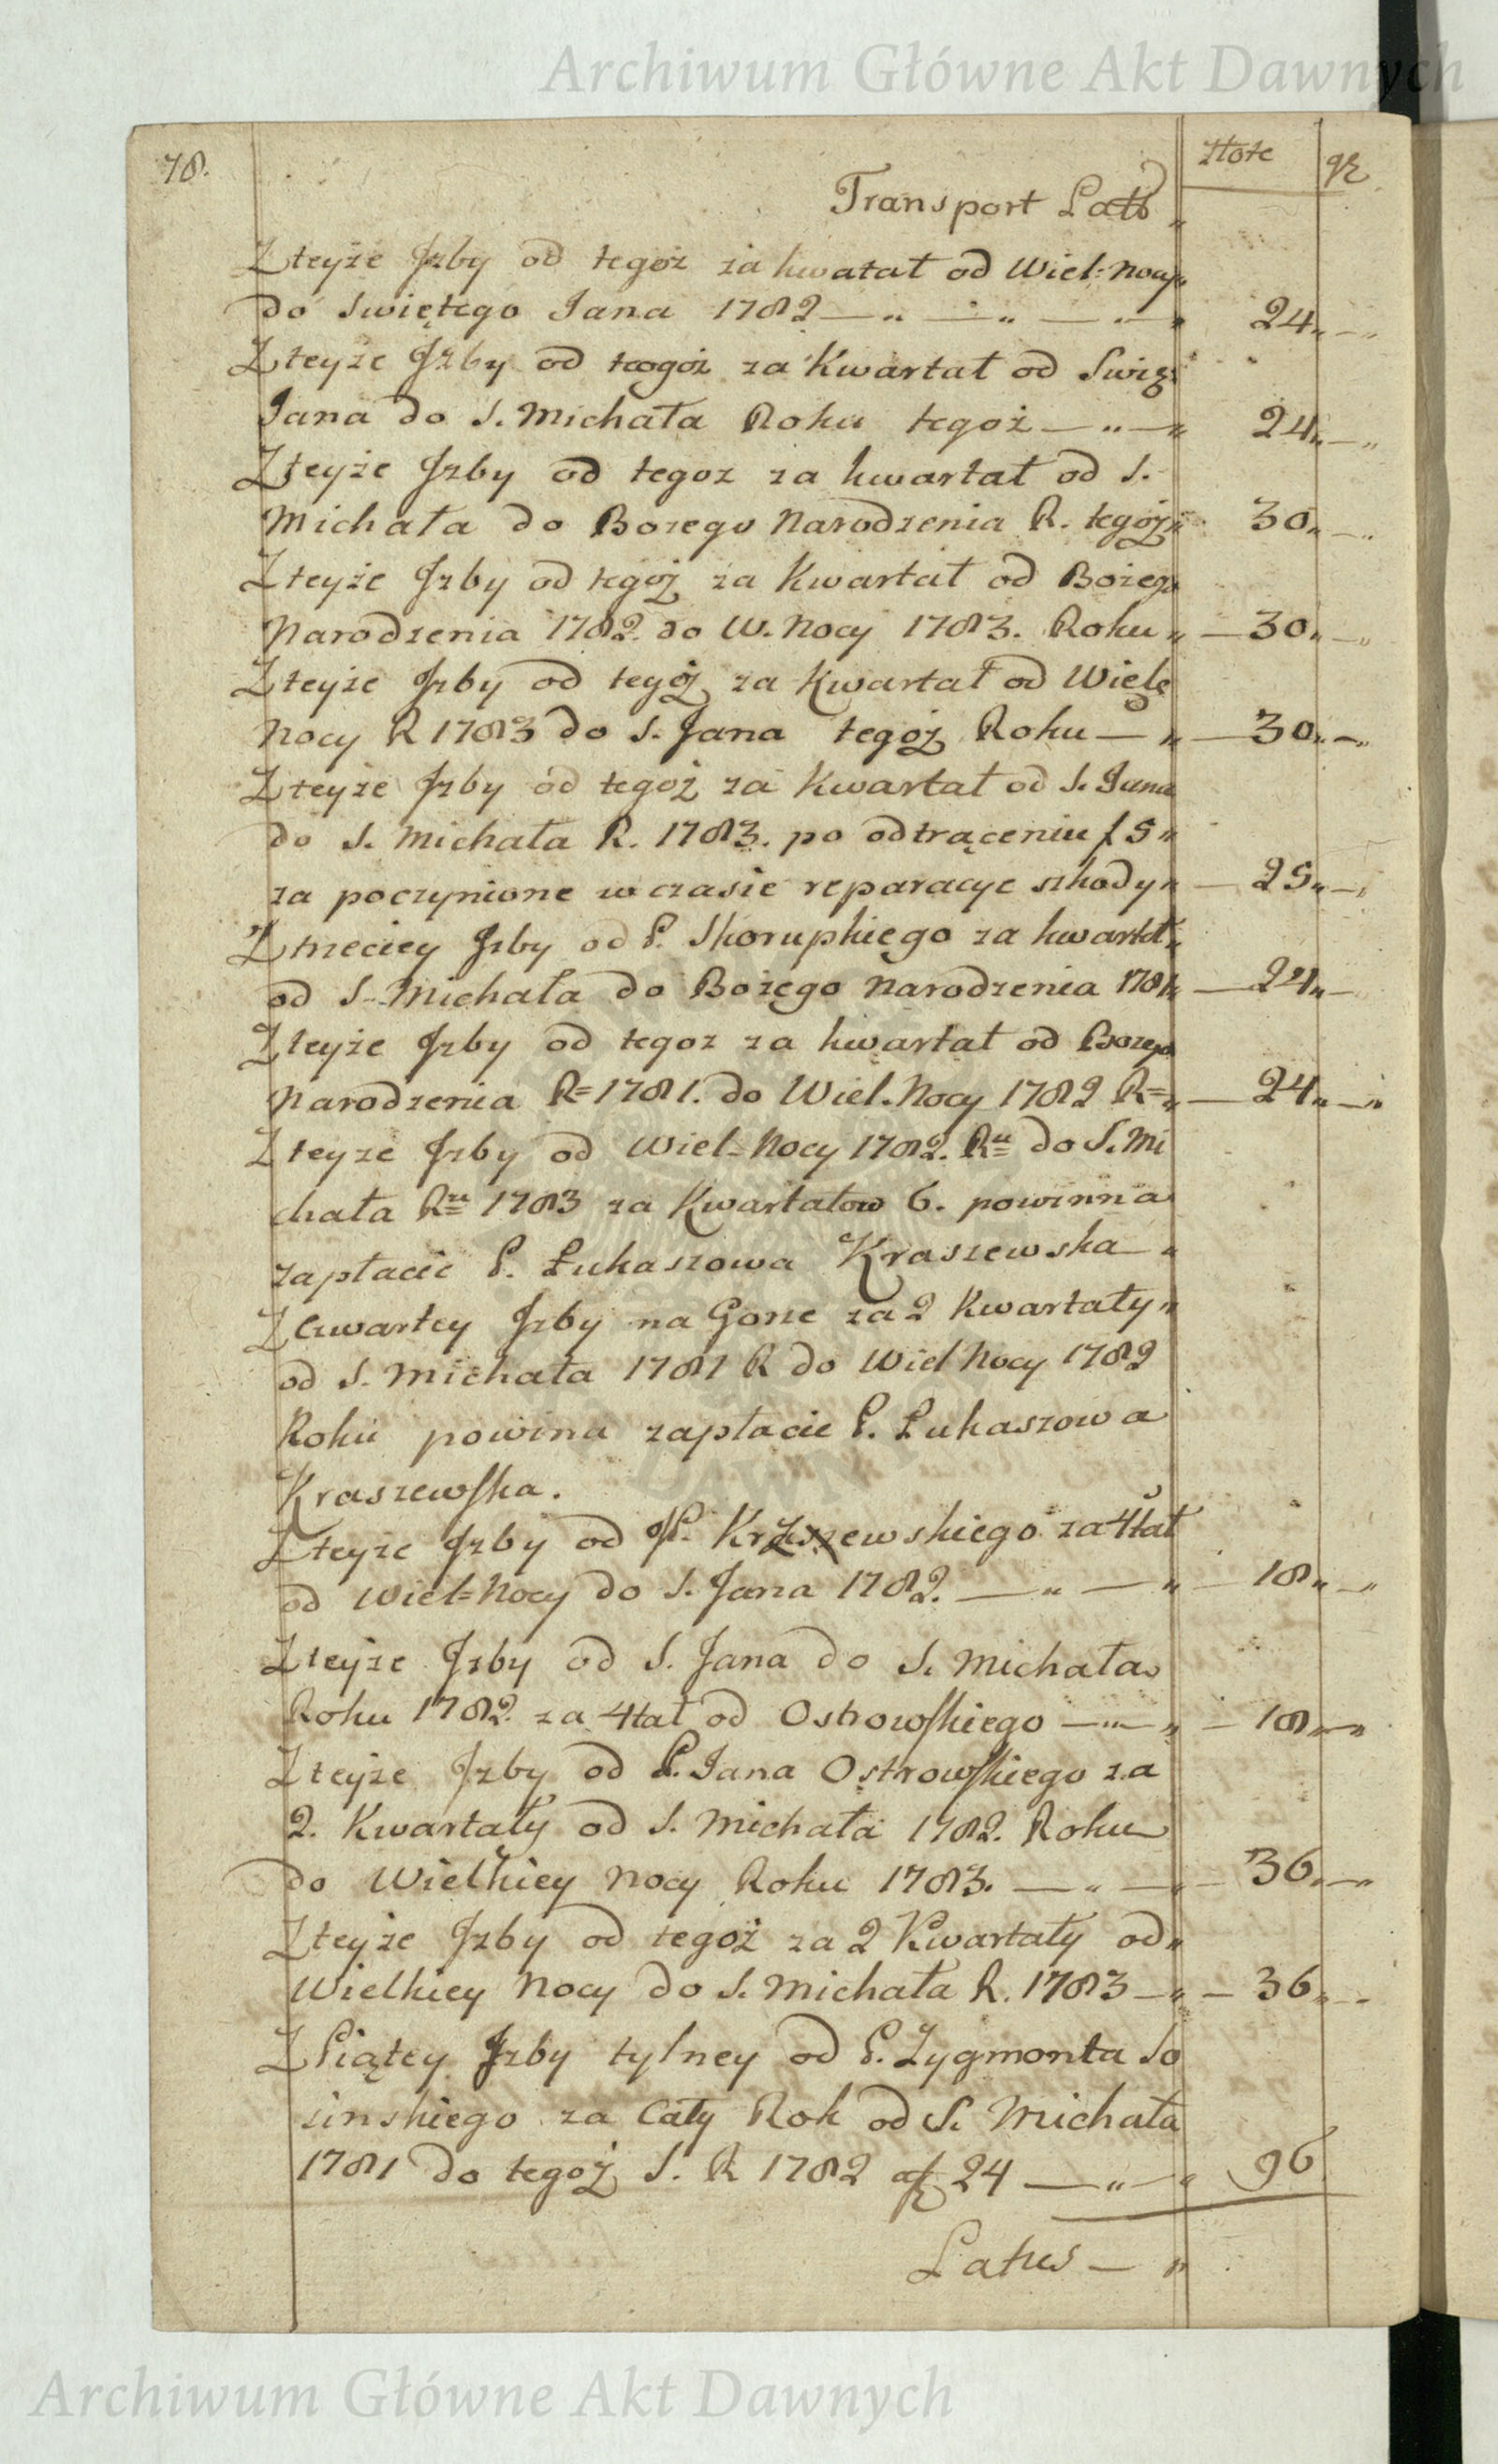 Archiwum Główne Akt Dawnych
78.
złote gr
Transport Latus
Z teyże Jzby od tegoż za kwatał od Wiel: Nocy
do swiętego Jana 1782 — „ — „ — „ 24 „ — „
Z teyże Jzby od tegoż za Kwartał od Swię:
Jana do S. Michała Roku tegoż — „ — „ 24 „ — „
Z teyże Jzby od tegoz za kwartał od S.
Michała do Bozego Narodzenia R. tegoż „ 30 „ — „
Z teyże Jzby od tegoż za Kwartał od Bożego
Narodzenia 1782. do W. Nocy 1783. Roku „ — 30 „ — „
Z teyże Jzby od tegoż za Kwartał od Wielę
Nocy R 1783 do S. Jana tegoż Roku — „ — 30 „ — „
Z teyże Jzby od tegoż za Kwartał od S. Jana
do S. Michała R. 1783. po odtrąceniu f 5 „
za poczynione w czasie reparacye szkody „ — 25 „ — „
Z trzeciey Jzby od P. Skorupkiego za kwartał „
od S. Michała do Bożego Narodzenia 1781 „ — 24 „ —
Z teyże Jzby od tegoz za kwartał od Bozego
Narodzenia R= 1781. do Wiel. Nocy 1782 R= „ — 24 „ — „
Z teyze Jzby od Wiel= Nocy 1782. Ru= do S. Mi
chała Ru= 1783 za Kwartałow 6. powinna
zapłacic P. Łukaszowa Kraszewska — „
Z Czwartey Jzby na Gorze za 2 Kwartały „
od S. Michała 1781 R do Wiel Nocy 1782
Roku powina zapłacie P. Łukaszowa
Kraszewska.
Z teyze Jzby od JP. Krzszewskiego za 4tał
od Wiel= Nocy do S. Jana 1782. — „ — „ 18 „ — „
Z teyże Jzby od S. Jana do S. Michała
Roku 1782. za 4tał od Ostrowskiego — „ — „ — 18 „ — „
Z teyże Jzby od P. Jana Ostrowskiego za
2. Kwartały od S. Michała 1782. Roku
do Wielkiey Nocy Roku 1783. — „ — „ — 36 „ — „
Z teyże Jzby od tegoż za 2 Kwartały od „
Wielkiey Nocy do S. Michała R. 1783 — „ — 36 „ —
Z Piątey Jzby tylney od P. Zygmonta So
sinskiego za Cały Rok od S. Michała
1781 do tegoż S. R 1782 af 24 — „ — „ 96
Latus — „
Archiwum Główne Akt Dawnych